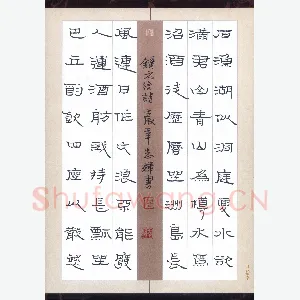 石漁湖似洞庭夏水欲
滿君山青山為樽水為
沼酒徒歷歷坐洲島長
風連日作大浪不能廢
人運酒舫我持長瓢坐
巴丘酌飲四座以散愁
Shufawang.CN